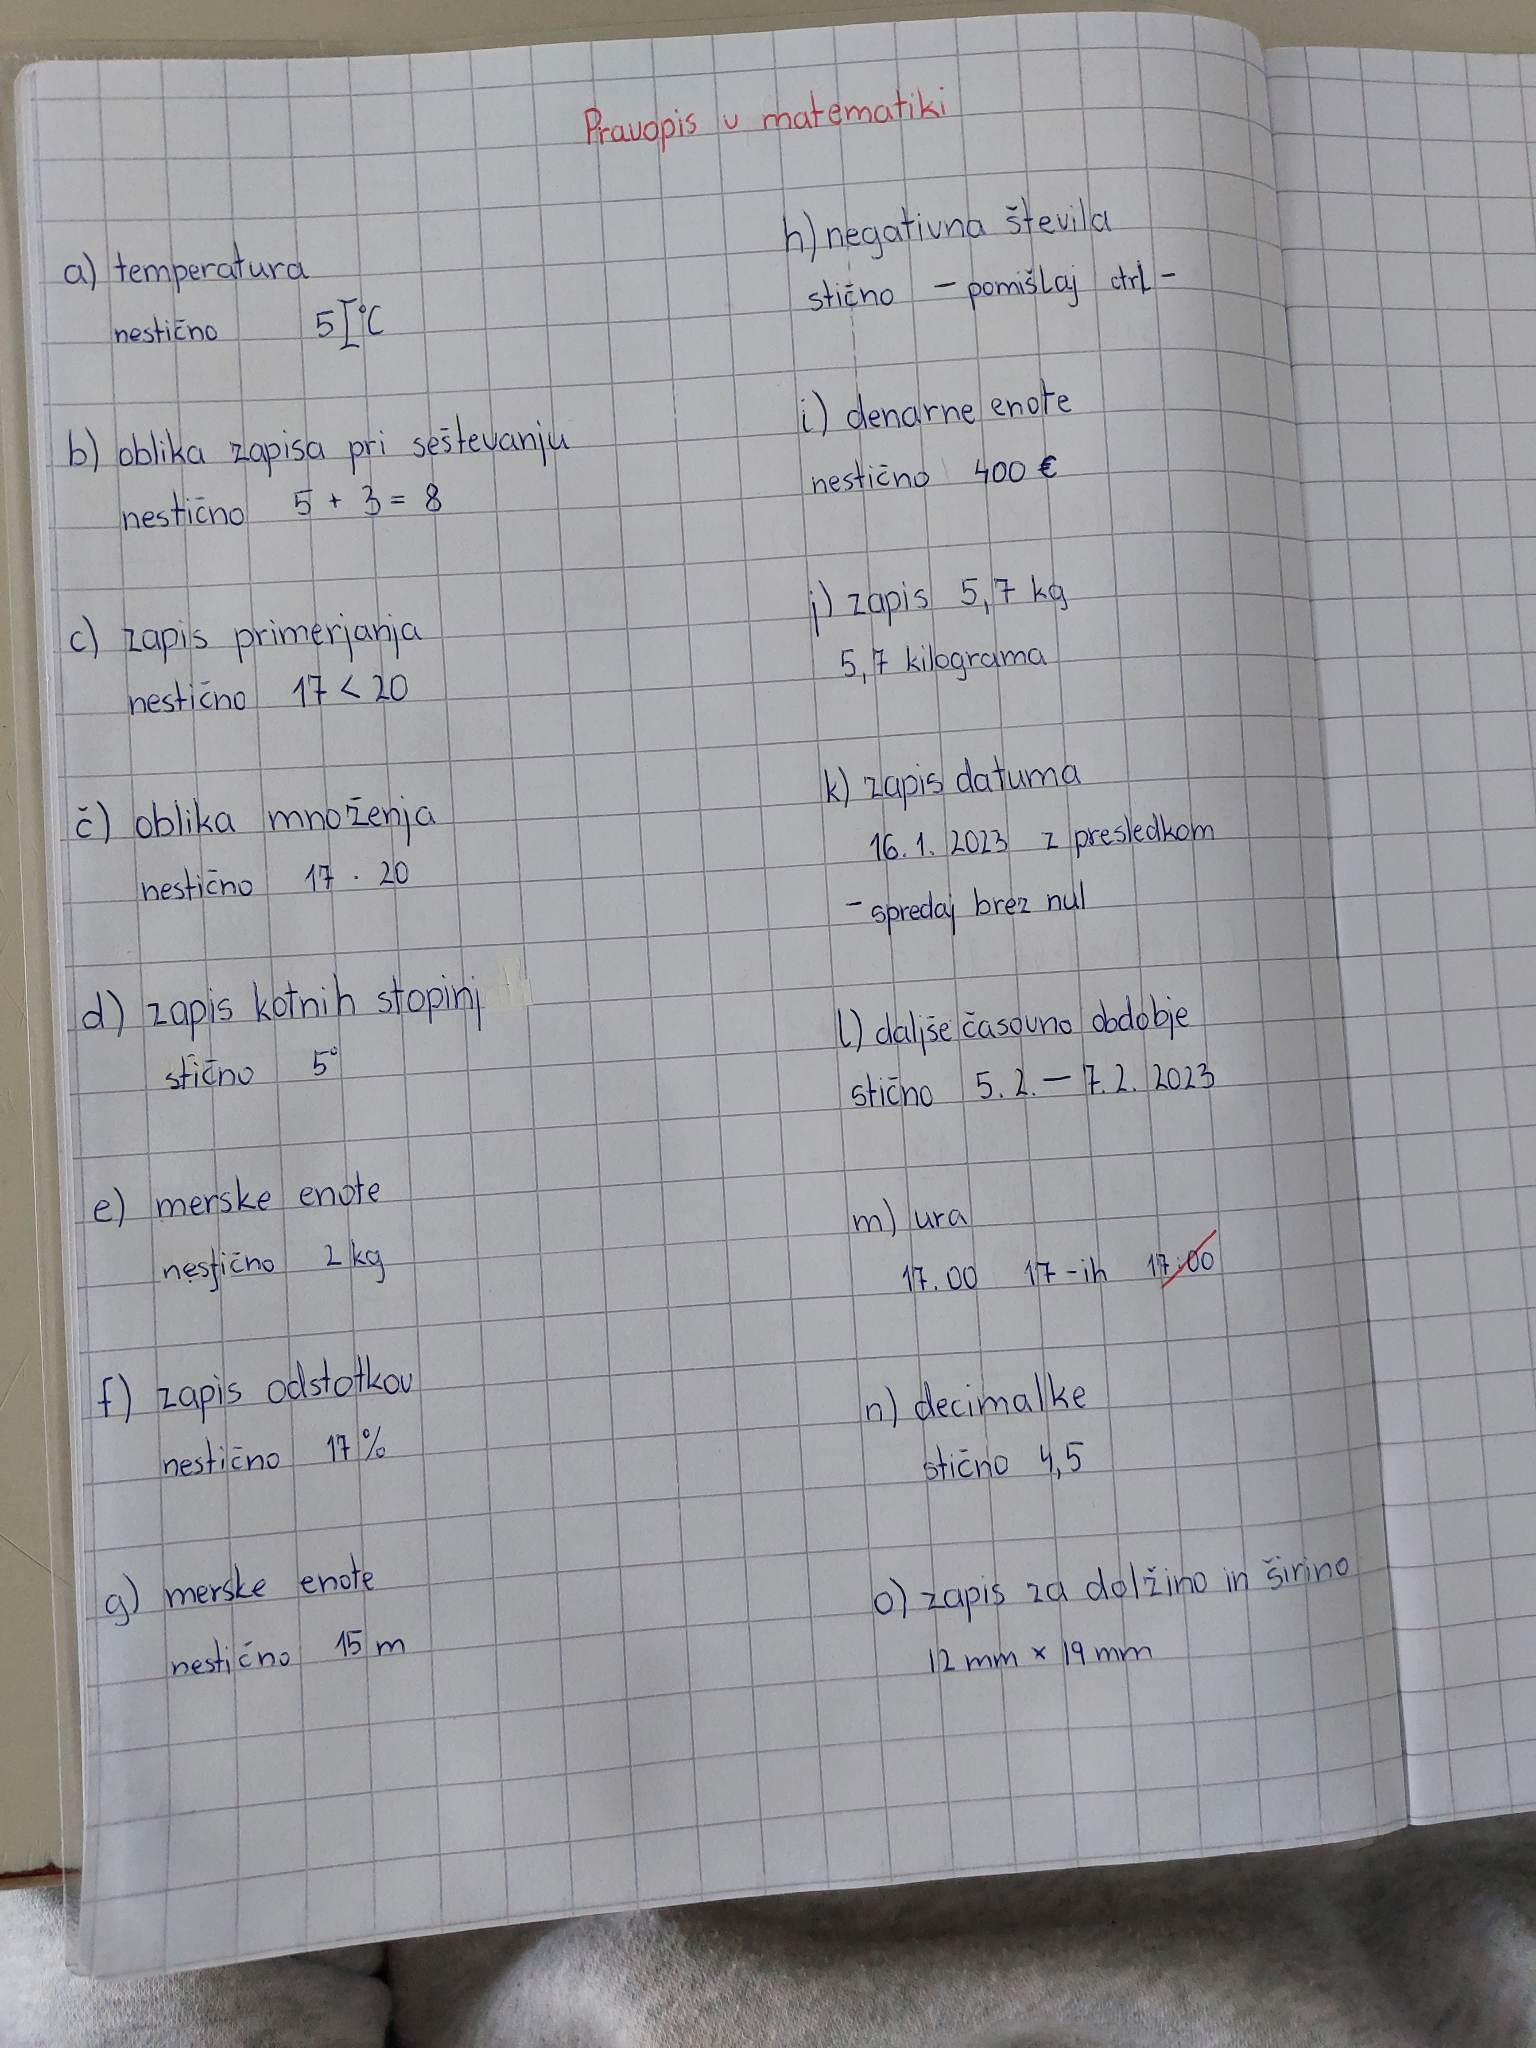 Pravopis v matematiki
a) temperatura
nestično 5 °C
b) oblika zapisa pri seštevanju
nestično 5 + 3 = 8
c) zapis primerjanja
nestično 17 < 20
č) oblika množenja
nestično 17 · 20
d) zapis kotnih stopinj
stično 5°
e) merske enote
nestično 2 kg
f) zapis odstotkov
nestično 17 %
g) merske enote
nestično 15 m
h) negativna števila
stično - pomišljaj ctrl -
i) denarne enote
nestično 400 €
j) zapis 5,7 kg
5,7 kilograma
k) zapis datuma
16. 1. 2023 z presledkom
- spredaj brez nul
l) daljše časovno obdobje
stično 5. 2. – 7. 2. 2023
m) ura
17.00 17-ih 17:00
n) decimalke
stično 4,5
o) zapis za dolžino in širino
12 mm × 19 mm